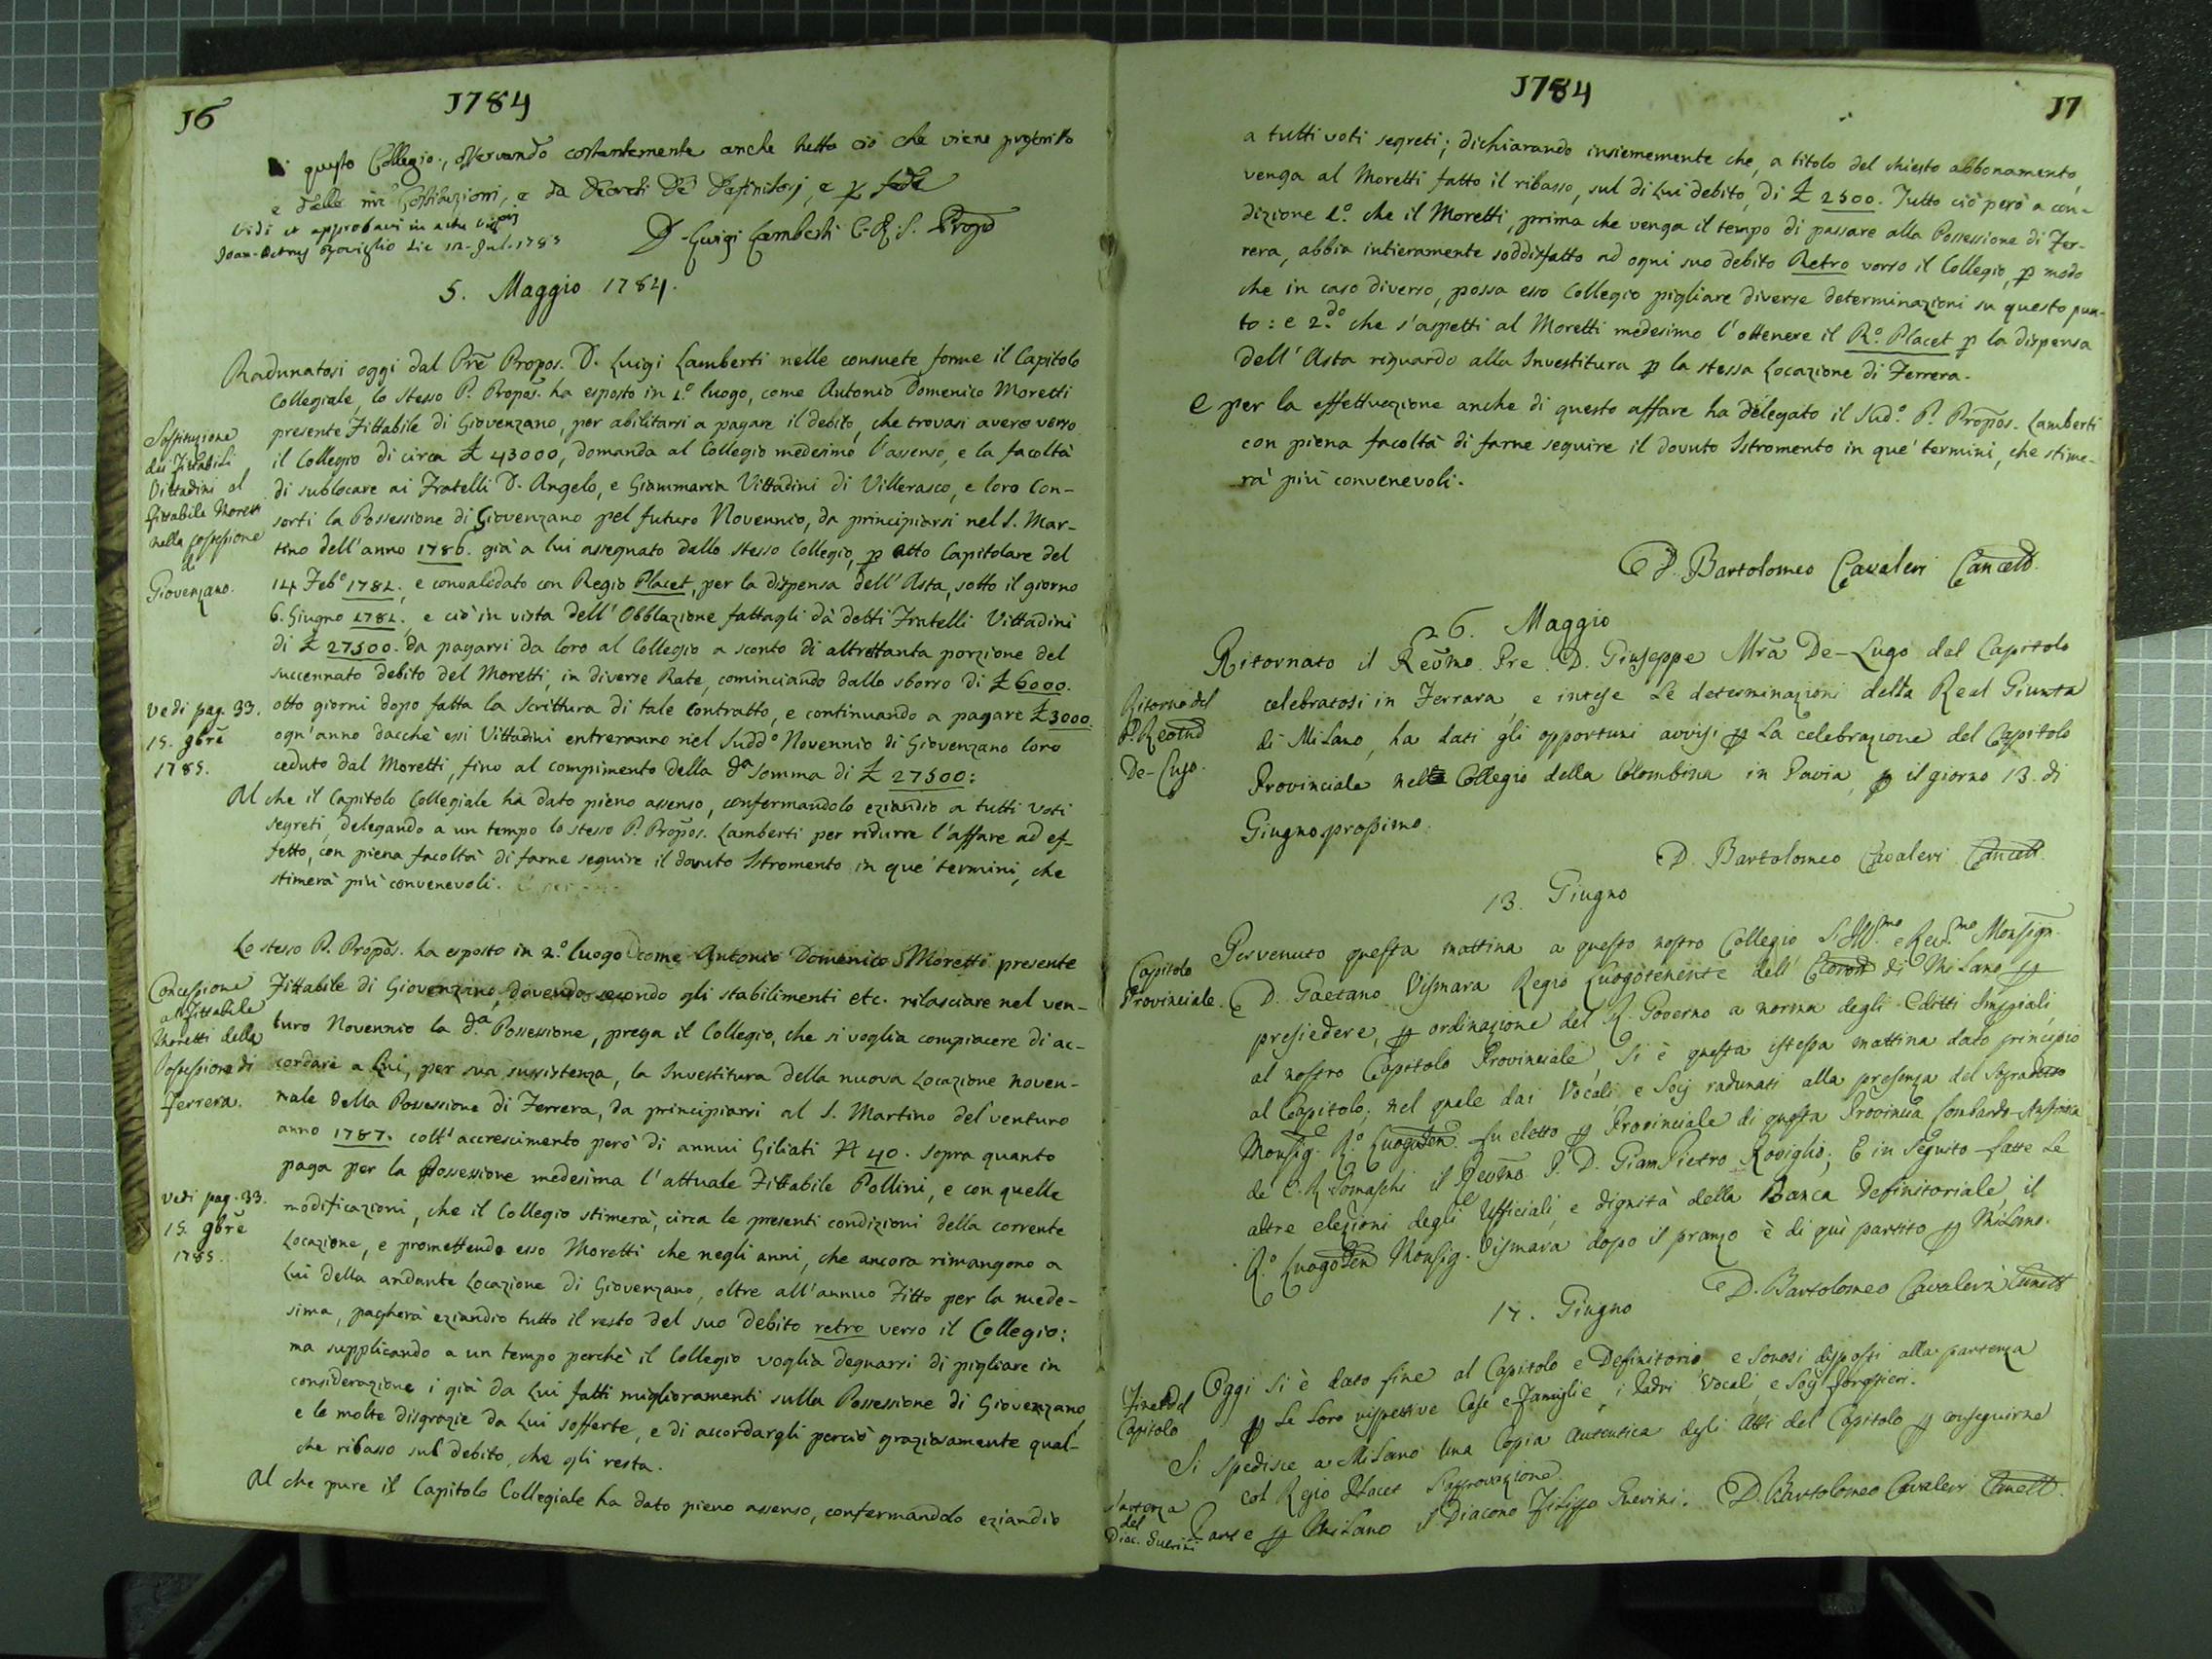 16
1784
di questo Collegio, osservando costantemente anche tutto ciò che viene prescritto
e dalle nrē Costituzioni, e da Decreti de' Definitorj, e p fede
Vidi et approbavi in actu
Joan. Petrus Roviglio die 12. Jul. 1785
D. Luigi Lamberti C.R.S. Propo
5. Maggio 1784.
Radunatosi oggi dal Prē Propos. D. Luigi Lamberti nelle consuete forme il Capitolo
Collegiale, lo stesso P. Propos. ha esposto in 1.° luogo, come Antonio Domenico Moretti
presente Fittabile di Giovenzano, per abilitarsi a pagare il debito, che trovasi avere verso
il Collegio di circa £ 43000, domanda al Collegio medesimo l'assenso, e la facoltà
di sublocare ai Fratelli D. Angelo, e Giammaria Vittadini di Villerasco, e loro Con-
sorti la Possessione di Giovenzano pel futuro Novennio, da principiarsi nel S. Mar-
tino dell'anno 1786. già a lui assegnato dallo stesso Collegio, p atto Capitolare del
14 Feb° 1782; e convalidato con Regio Placet, per la dispensa dell'Asta, sotto il giorno
6. Giugno 1782; e ciò in vista dell'Obblazione fattagli dà detti Fratelli Vittadini
di £ 27500. da pagarsi da loro al Collegio a sconto di altrettanta porzione del
succennato debito del Moretti, in diverse Rate, cominciando dallo sborso di £ 6000.
otto giorni dopo fatta la Scrittura di tale contratto, e continuando a pagare £ 3000.
ogn'anno dacchè essi Vittadini entreranno nel Sudd° Novennio di Giovenzano loro
ceduto dal Moretti, fino al compimento della da somma di £ 27500:
Al che il Capitolo Collegiale ha dato pieno assenso, confermandolo eziandio a tutti voti
segreti, delegando a un tempo lo stesso P. Propos. Lamberti per ridurre l'affare ad ef-
fetto, con piena facoltà di farne seguire il dovuto Istromento in que' termini, che
stimerà più convenevoli.
Sostituzione
dei Fittabili
Vittadini al
fittabile Moretti
nella possessione
di
Giovenzano.
vedi pag. 33.
15. 9brē
1785.
Lo stesso P. Propos. ha esposto in 2.° luogo come Antonio Domenico Moretti presente
Fittabile di Giovenzano, dovendo secondo gli stabilimenti etc. rilasciare nel ven-
turo Novennio la da Possessione, prega il Collegio, che si voglia compiacere di ac-
cordare a Lui, per sua sussistenza, la Investitura della nuova Locazione noven-
nale della Possessione di Ferrera, da principiarsi al S. Martino del venturo
anno 1787. coll'accrescimento però di annui Giliati N 40. sopra quanto
paga per la Possessione medesima l'attuale Fittabile Pollini, e con quelle
modificazioni, che il Collegio stimerà, circa le presenti condizioni della corrente
Locazione, e promettendo esso Moretti che negli anni, che ancora rimangono a
Lui della andante Locazione di Giovenzano, oltre all'annuo Fitto per la mede-
sima, pagherà eziandio tutto il resto del suo debito retro verso il Collegio:
ma supplicando a un tempo perchè il Collegio voglia degnarsi di pigliare in
considerazione i già da Lui fatti miglioramenti sulla Possessione di Giovenzano
e le molte disgrazie da Lui sofferte, e di accordargli perciò graziosamente qual-
che ribasso sul debito, che gli resta.
Al che pure il Capitolo Collegiale ha dato pieno assenso, confermandolo eziandio
Concessione
al Fittabile
Moretti della
Possessione di
Ferrera.
vedi pag. 33.
15. 9brē
1785.
1784
17
a tutti voti segreti; dichiarando insiememente che, a titolo del chiesto abbonamento,
venga al Moretti fatto il ribasso, sul di Lui debito, di £ 2500. Tutto ciò però a con-
dizione 1.° che il Moretti, prima che venga il tempo di passare alla Possessione di Fer-
rera, abbia intieramente soddisfatto ad ogni suo debito Retro verso il Collegio, p modo
che in caso diverso, possa esso Collegio pigliare diverse determinazioni su questo pun-
to: e 2.do che s'aspetti al Moretti medesimo l'ottenere il R.° Placet p la dispensa
dell'Asta riguardo alla Investitura p la stessa Locazione di Ferrera.
E per la effettuazione anche di questo affare ha delegato il Sud.° P. Propos. Lamberti
con piena facoltà di farne seguire il dovuto Istromento in que' termini, che stime-
rà più convenevoli.
D. Bartolomeo Cavaleri Cancell
6. Maggio
Ritornato il Revmo Pre D. Giuseppe Mrā De-Lugo dal Capitolo
celebratosi in Ferrara, e intese le determinazioni della Real Giunta
di Milano, ha dati gli opportuni avvisi p la celebrazione del Capitolo
Provinciale nel Collegio della Colombina in Pavia, p il giorno 13. di
Giugno prossimo.
Ritorno del
P. Revmo
De-Lugo.
D. Bartolomeo Cavaleri Cancell.
13. Giugno
Pervenuto questa mattina a questo nostro Collegio S. Ill.mo e Rev.mo Monsign.
D. Gaetano Vismara Regio Luogotenente dell' di Milano p
presiedere, p ordinazione del R. Governo a norma degli Editti Imperiali,
al nostro Capitolo Provinciale, si è questa istessa mattina dato principio
al Capitolo; nel quale dai Vocali e Socj radunati alla presenza del
Monsig. R.° Luogoten fu eletto p Provinciale di questa Provincia Lombardo-Austriaca
de C. R. Somaschi il Revmo P. D. GiamPietro Roviglio; E in seguito fatte le
altre elezioni degli Ufficiali, e dignità della Banca Definitoriale, il
R.° Luogoten Monsig. Vismara dopo il pranzo è di quì partito p Milano.
Capitolo
Provinciale.
D. Bartolomeo Cavaleri Cancell
17. Giugno
Oggi si è dato fine al Capitolo e Definitorio, e sonosi disposti alla partenza
p le loro rispettive Case e Famiglie, i Padri Vocali, e Socj forestieri.
Si spedisce a Milano una Copia Autentica degli Atti del Capitolo p conseguirne
col Regio Placet l'approvazione.
Parte p Milano il Diacono Filippo Guerini. D. Bartolomeo Cavaleri Cancell.
Fine del
Capitolo
Partenza
del
Diac. Guerini